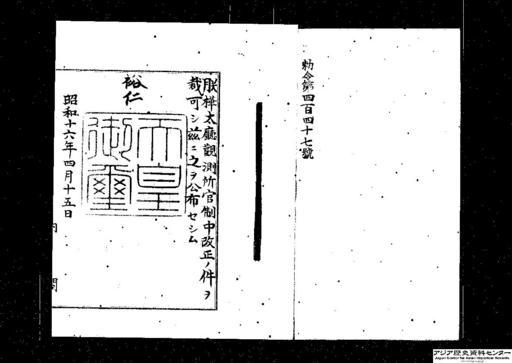 勅令第四百四十七號
朕樺太廳觀測所官制中改正ノ件ヲ
裁可シ茲ニ之ヲ公布セシム
裕仁
天皇
御璽
昭和十六年四月十五日
内閣
アジア歴史資料センター
Japan Center for Asian Historical Records